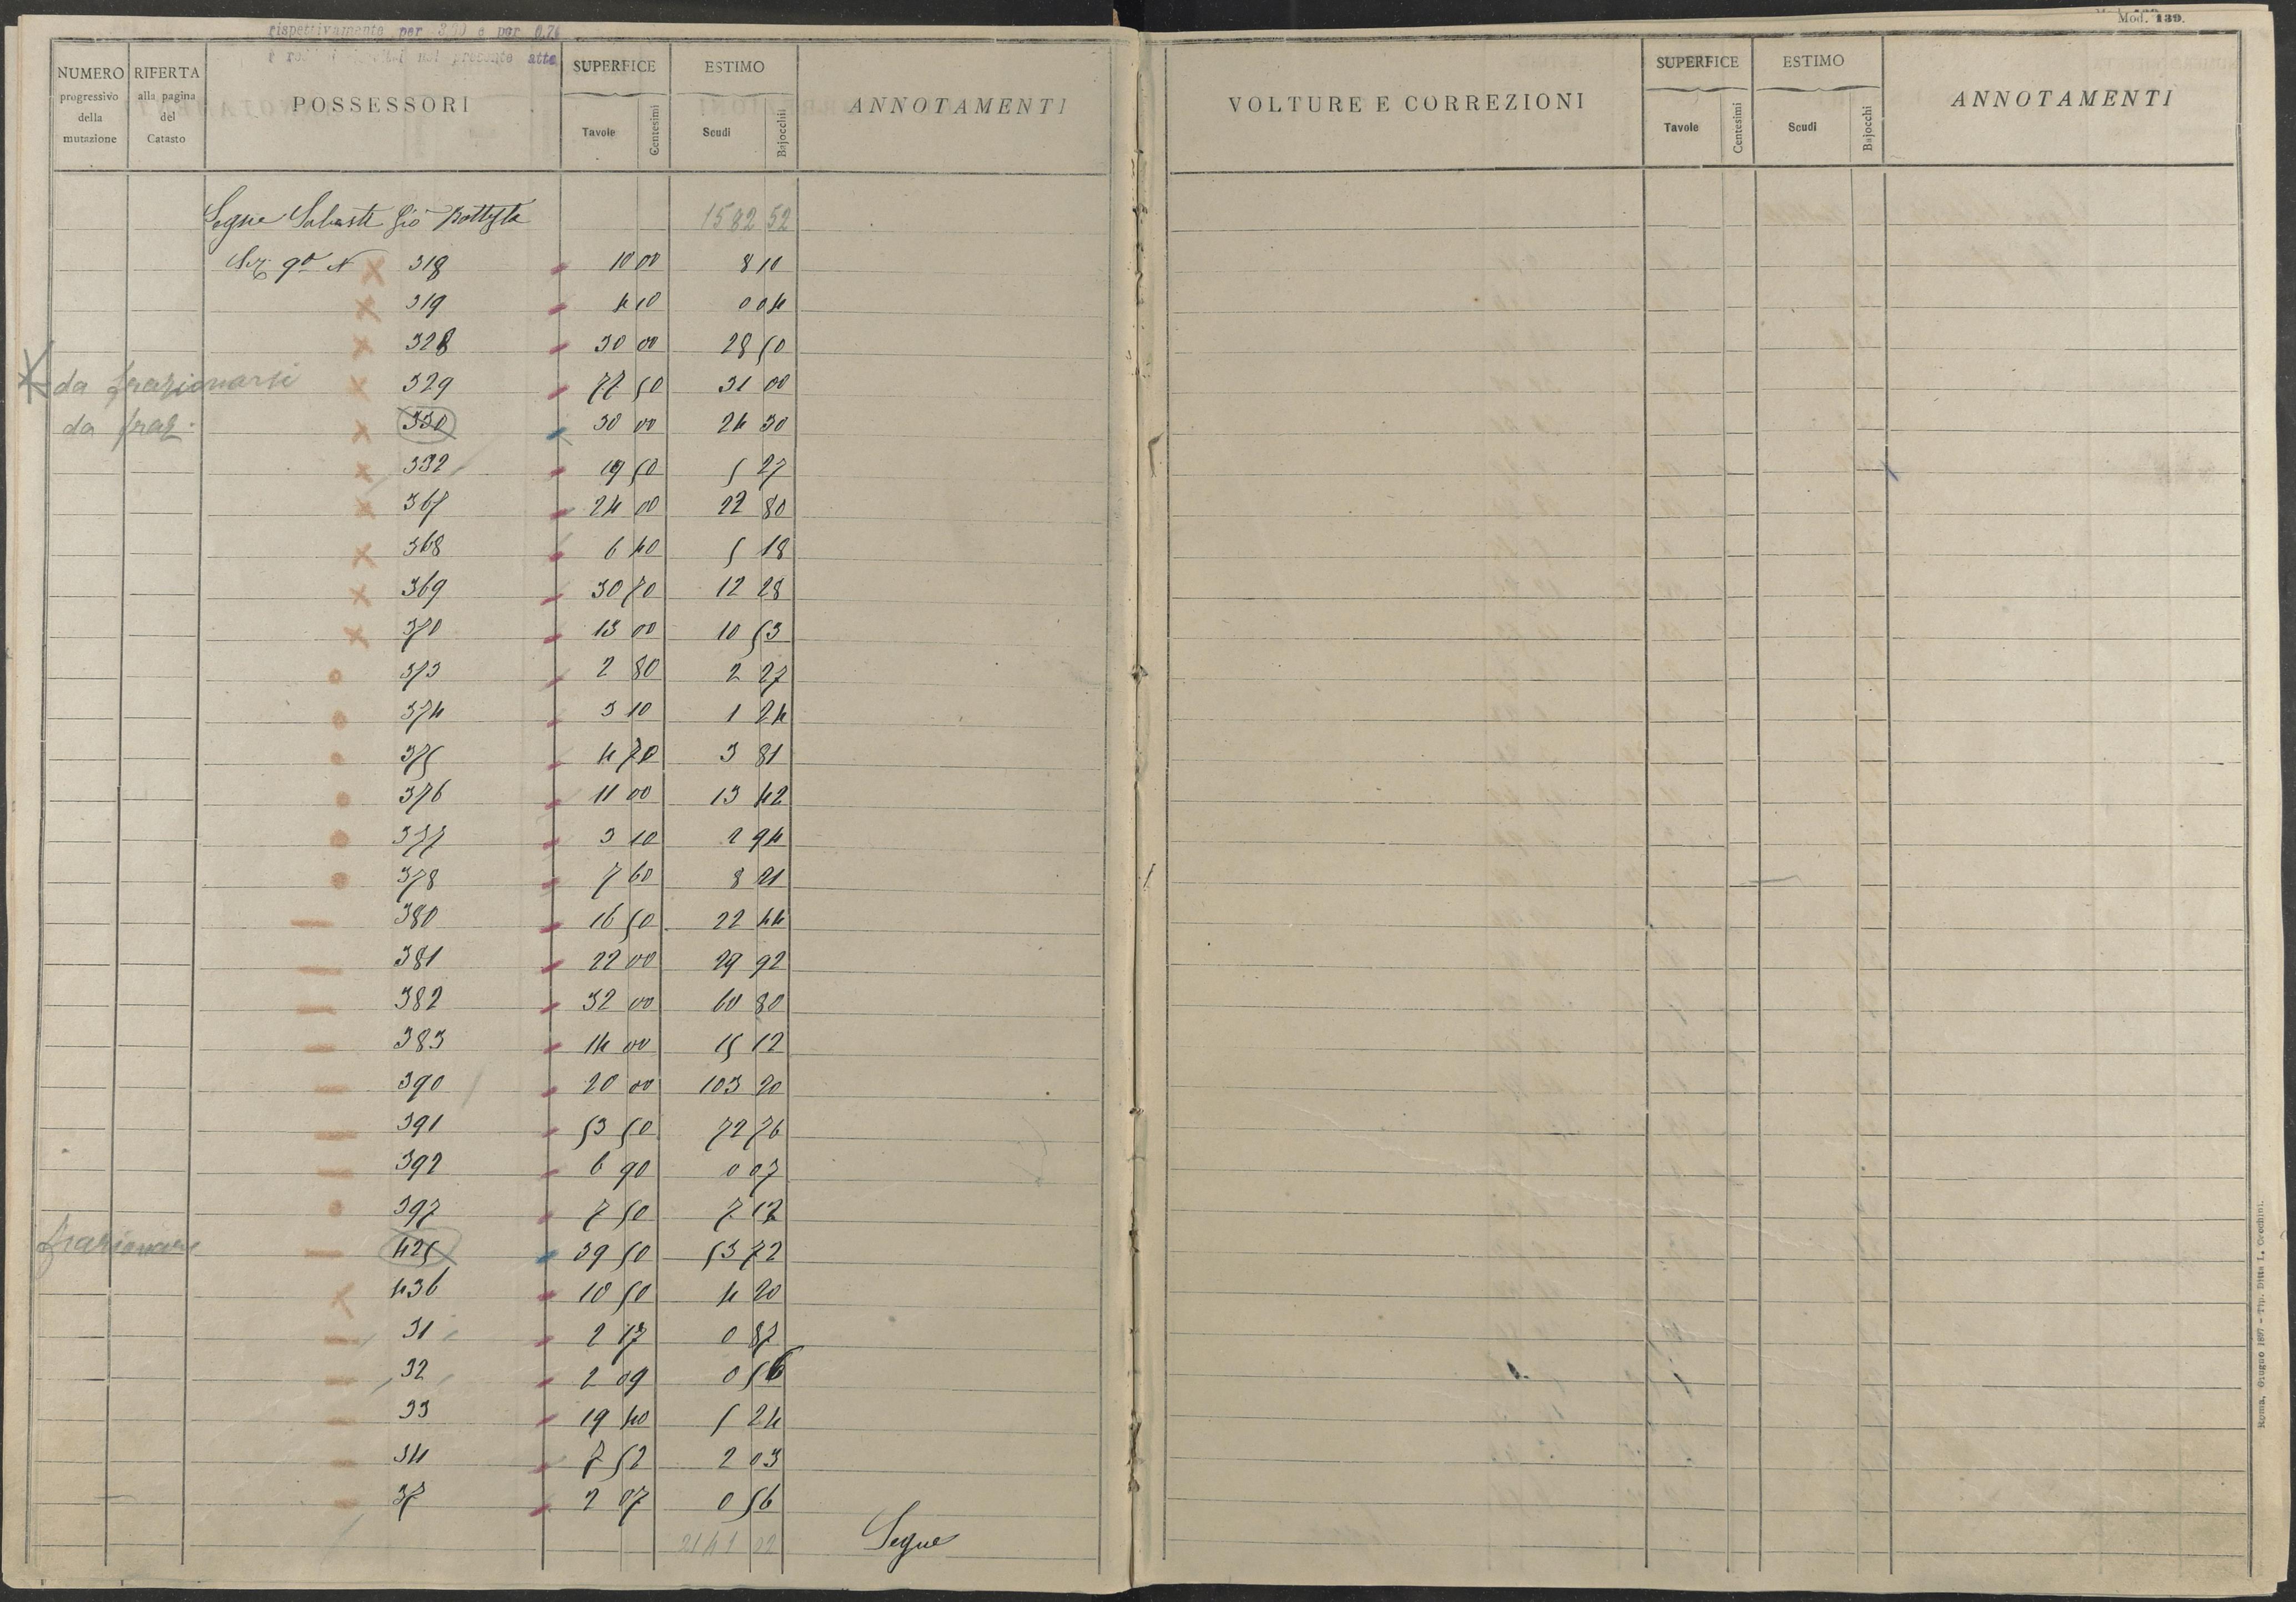 rispettivamente per 3,90 e per 0.76
nel presente atto
NUMERO progressivo della mutazione
RIFERTA alla pagina del Catasto
POSSESSORI
SUPERFICE
Tavole Centesimi
ESTIMO
Scudi Bajocchi
ANNOTAMENTI
Segue Gio Battista 1582 52
Sez. 9a N 318 10 00 8 10
319 4 10 0 04
328 30 00 28 50
da frazionarsi 329 77 50 31 00
da fraz. 330 30 00 24 30
332 19 50 5 27
367 24 00 22 80
368 6 40 5 18
369 30 70 12 28
370 13 00 10 53
373 2 80 2 27
374 3 10 1 24
375 4 70 3 81
376 11 00 13 42
377 3 10 2 94
378 7 60 8 21
380 16 50 22 44
381 22 00 29 92
382 32 00 60 80
383 14 00 15 12
390 20 00 103 20
391 53 50 72 76
392 6 90 0 07
397 7 50 7 12
frazionare 425 39 50 53 72
436 10 50 4 20
31 2 17 0 87
32 2 09 0 56
33 19 40 5 24
34 7 52 2 03
37 2 07 0 56
2141 02 Segue
Mod. 139.
VOLTURE E CORREZIONI
SUPERFICE
Tavole Centesimi
ESTIMO
Scudi Bajocchi
ANNOTAMENTI
Roma, Giugno 1897 - Tip. Ditta L. Cecchini.